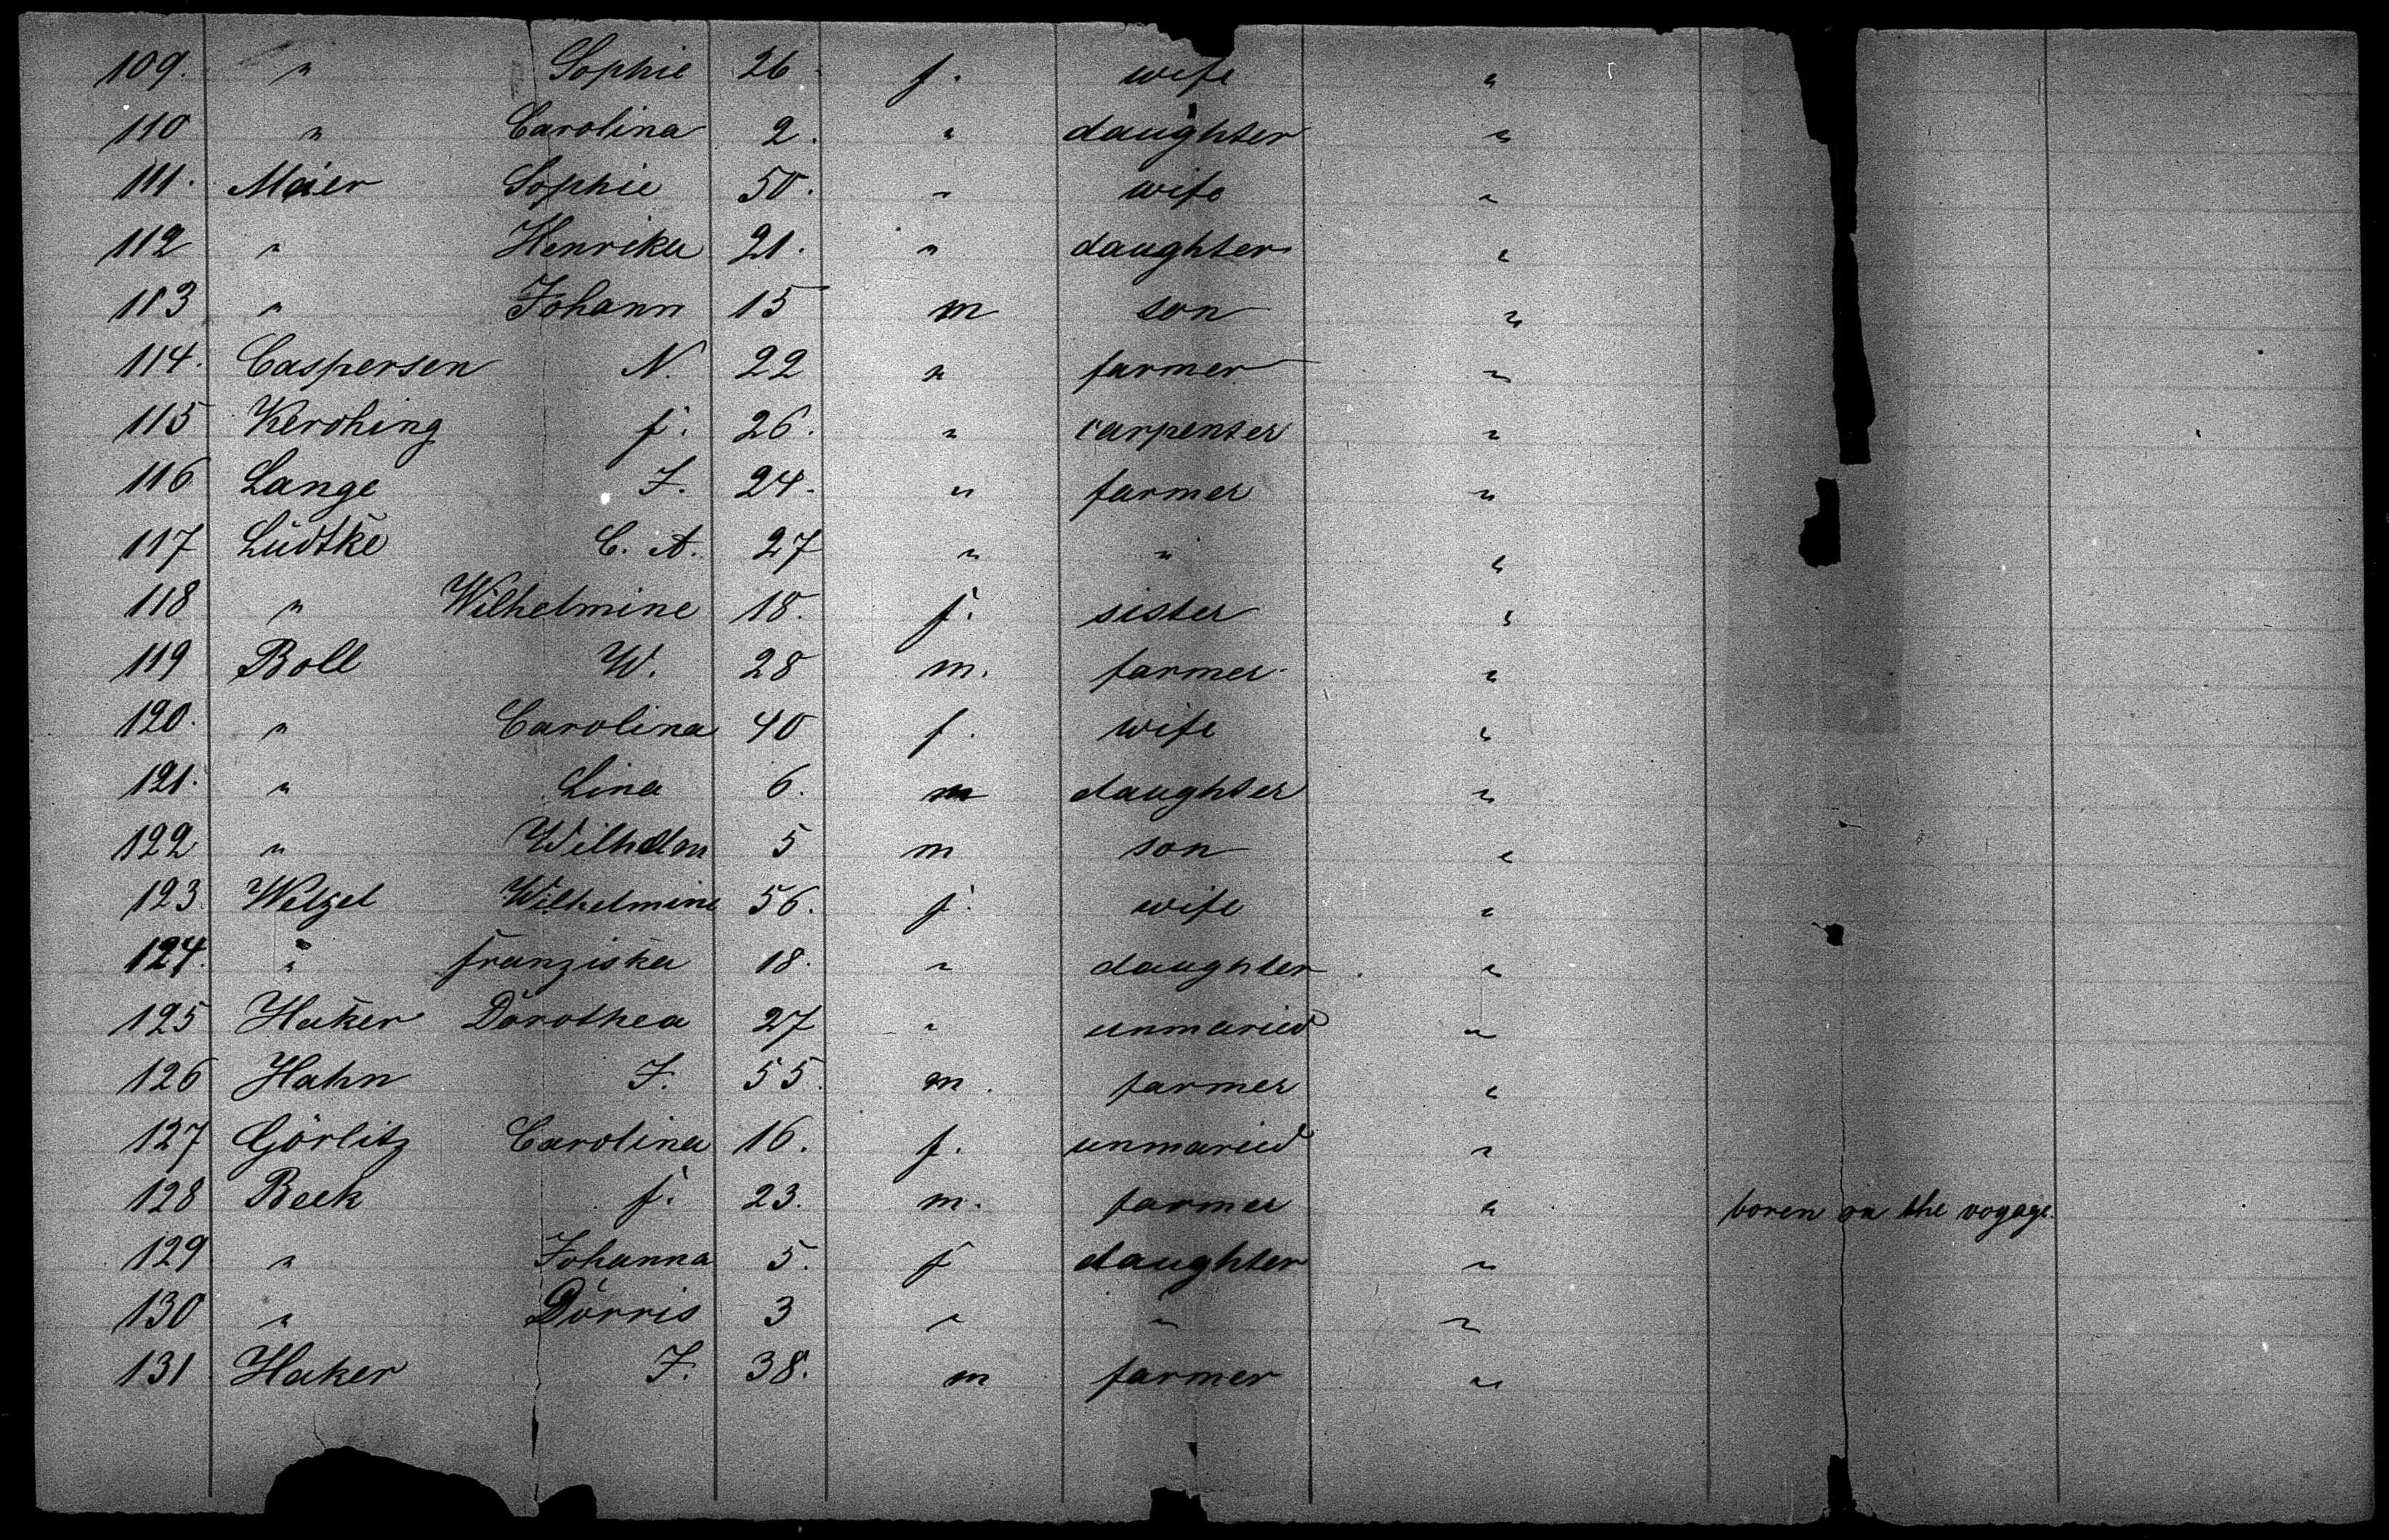 109. " Sophie 26. f. wife "
110 " Carolina 2. " daughter "
111. Meier Sophie 50. " wife "
112 " Henrika 21. " daughter "
113 " Johann 15 m son "
114. Caspersen N. 22 " farmer "
115 Kerohing f. 26. " carpenter "
116 Lange J. 24. " farmer "
117 Lüdtke C. A. 27 " " "
118 " Wilhelmine 18. f. sister "
119 Boll W. 28 m. farmer "
120. " Carolina 40 f. wife "
121. " Lina 6. m daughter "
122 " Wilhelm 5 m son "
123 Wetzel Wilhelmine 56. f. wife "
124. " Franziska 18. " daughter "
125 Haker Dorothea 27 " unmaried "
126 Hahn J. 55. m. farmer "
127 Görlitz Carolina 16. f. unmaried "
128 Beek f. 23. m. farmer " boren on the voyage.
129 " Johanna 5. f daughter "
130 " Dorris 3 " " "
131 Haker J. 38. m farmer "